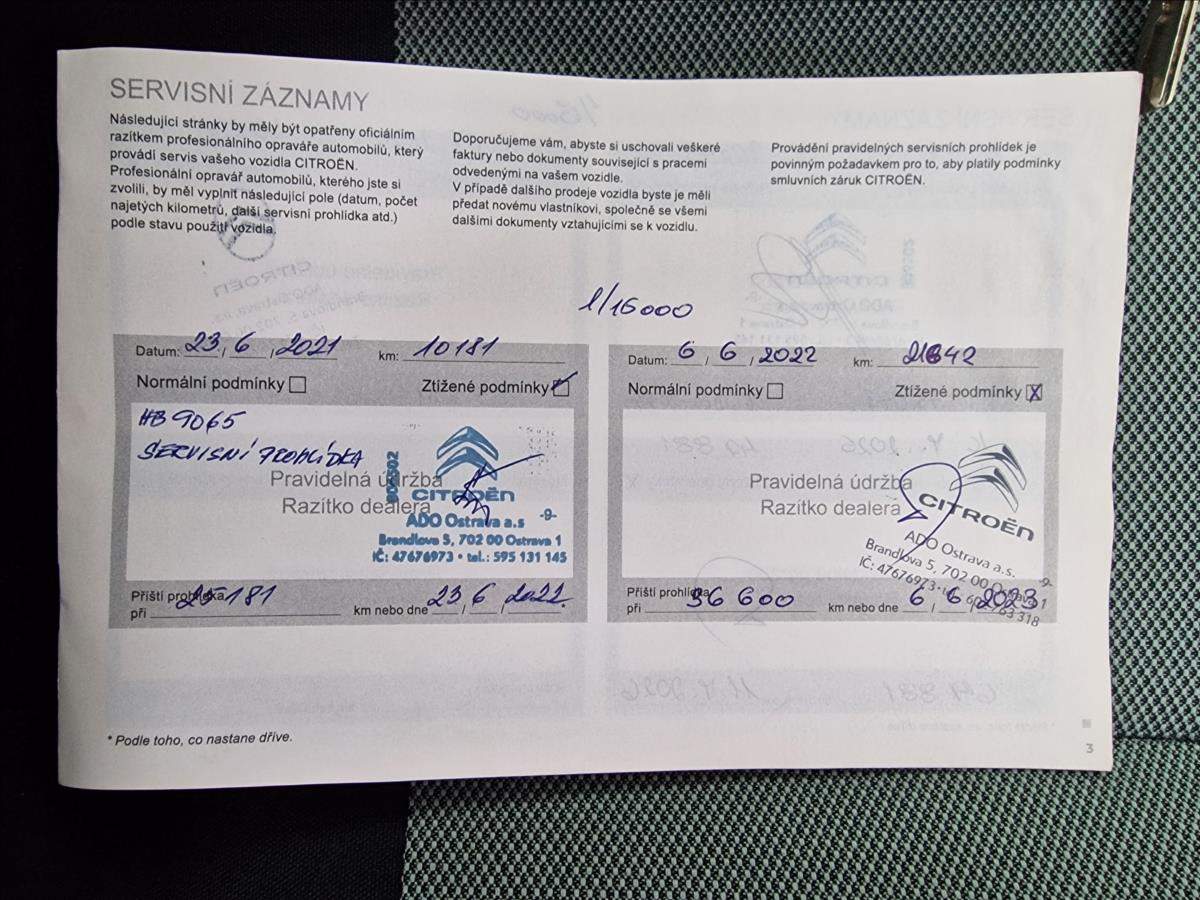 SERVISNÍ ZÁZNAMY
Následující stránky by měly být opatřeny oficiálním
razítkem profesionálního opraváře automobilů, který
provádí servis vašeho vozidla CITROËN.
Profesionální opravář automobilů, kterého jste si
zvolili, by měl vyplnit následující pole (datum, počet
najetých kilometrů, další servisní prohlídka atd.)
podle stavu použití vozidla.
Doporučujeme vám, abyste si uschovali veškeré
faktury nebo dokumenty související s pracemi
odvedenými na vašem vozidle.
V případě dalšího prodeje vozidla byste je měli
předat novému vlastníkovi, společně se všemi
dalšími dokumenty vztahujícími se k vozidlu.
Provádění pravidelných servisních prohlídek je
povinným požadavkem pro to, aby platily podmínky
smluvních záruk CITROËN.
1/15000
Datum: 23 / 6 / 2021 km: 10181
Normální podmínky Ztížené podmínky
HB 9065
SERVISNÍ PROHLÍDKA
Pravidelná údržba
Razítko dealera
CITROËN
ADO Ostrava a.s -9-
Brandlova 5, 702 00 Ostrava 1
IČ: 47676973 • tel.: 595 131 145
Příští prohlídka
při 25181 km nebo dne 23 / 6 / 2022
Datum: 6 / 6 / 2022 km:
Normální podmínky Ztížené podmínky X
Pravidelná údržba
Razítko dealera
CITROËN
ADO Ostrava a.s. -9-
Brandlova 5, 702 00
IČ: 47676973
Příští prohlídka
při 36 600 km nebo dne 6 / 6 / 2023
* Podle toho, co nastane dříve.
3